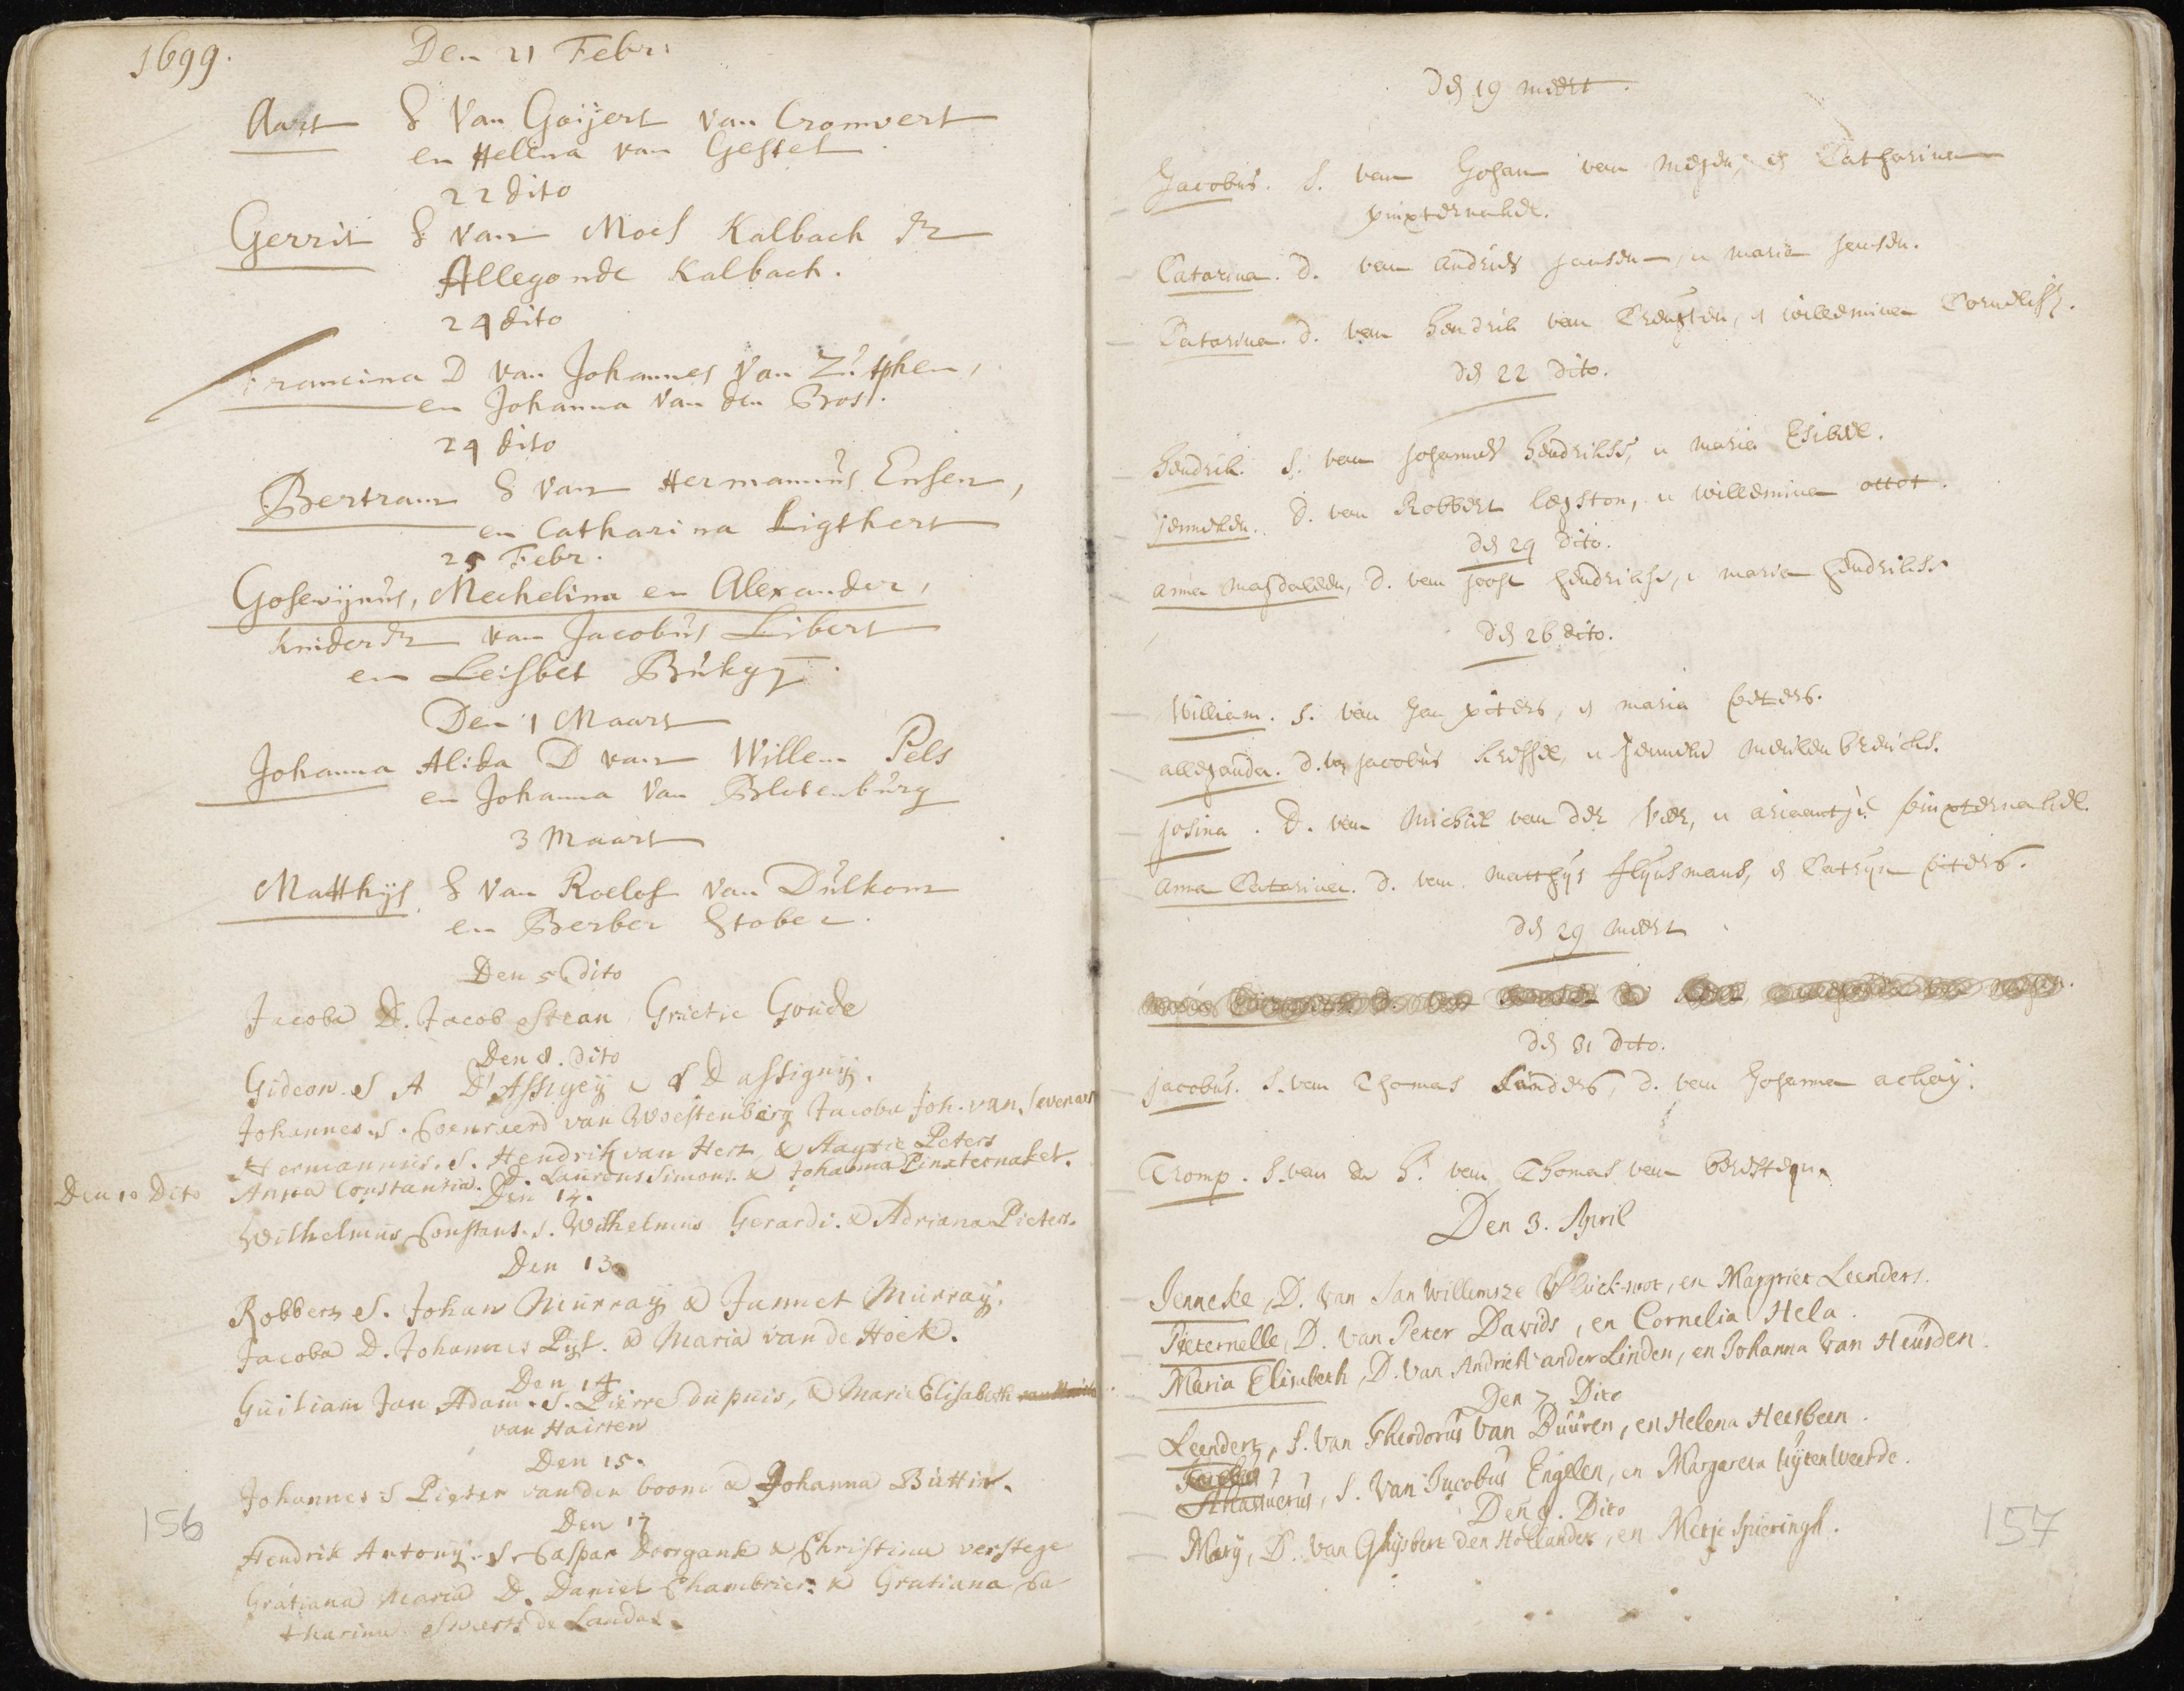 1699.
Den 21 Febr:
Aart S Van Goijert Van Cromvert
en Helena van Gestel.
22 dito
Gerrit S van Moes Kalbach &
Allegonde Kalbach.
24 dito
Francina D van Johannes Van Zutphen,
en Johanna Van den Bos.
24 dito
Bertram S van Hermannus Ensen,
en Catharina Ligthert
25 Febr.
Gosewijnus, Mechelina en Alexander,
kinder van Jacobus Libert
en Leisbet
Den 1 Maart
Johanna Alida D van Willem Pels
en Johanna Van Blotenburg
3 Maart
Matthijs S Van Roelof Van Dulkom
en Berber Stober.
Den 5 dito
Jacoba D. Jacob Grietie Goude
Den 8. dito
Gideon. S A D' Assigny D assignij.
Johannes. S. Coenraerd van Woestenberg Jacoba Joh. van
Hermannus. S. Hendrik van Hert, & Peters
Den 10 Dito Anna Constantia. D. Laurens Simons. & Johanna Pinxternakel.
Den 12.
Wilhelmus Constans. S. Wilhelmus Gerardi. & Adriana Pieters.
Den 13
Robbert S. Johan Murray & Jannet Murray.
Jacoba D. Johannes Pijl. & Maria van de Hoek.
Den 14
Guiliam Jan Adam. S. Pierre dupuis, & Marie Elisabeth
van Hairten
Den 15.
Johannes S Pieter van den boom & Johanna Buttir.
Den 17
Hendrik Antonij. S. Caspar Doorgank & Christina verstege
Gratiana Maria D. Daniel Chambrier. & Gratiana Ca
tharina Swerts de Landas.
156
den 19 meert.
Jacobus. S. van Johan van Megen, en Catharina
pinxternakel.
Catarina. D. van andries jansen, en maria jansen.
Catarina. D. van Hendrik van Creuften, en willemina Corneliss.
den 22 dito.
Hendrik. S. van Johannes Hendrikss, en maria
jenneken. D. van Robbert legston, en willemina ottot.
den 24 dito.
anna magdaleen, D. van joost hendrikss, en maria hendrikss.
den 26 dito.
William. S. van Jan piters, en maria peters.
allegonda. D. van jacobus kressel, en jenneke meulenbreucks.
josina. D. van Michiel van der Veer, en ariaantje pinxternakel.
anna Catarina. D. van Matthijs slijnsmans, en Catrijn piters.
den 29 meert
den 31 dito.
jacobus. S. van Thomas Sanders, D. van Johanna achay.
Tromp. S. van de Hr. van Thomas van beresteyn.
Den 3. April
Jenneke, D. Van Jan Willemsze, en Margriet Leenders.
Pieternelle, D. Van Peter Davids, en Cornelia Hela.
Maria Elisabeth, D. Van Andries vander Linden, en Johanna Van Heusden.
Den 7 Dito
Leendert, S. Van Theodorus Van Duuren, en Helena Heesbeen.
Ahasuerus, S. Van Jacobus Engelen, en Margareta Uijtenweerde.
Den 9. Dito
Marij, D. Van Ghijsbert den Hollander, en Metje Spieringh.
157